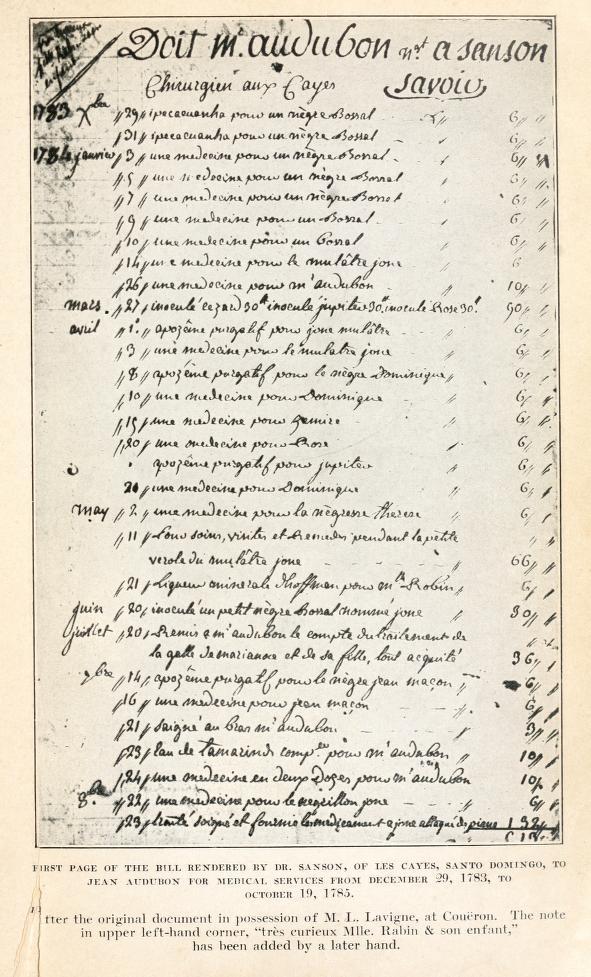 Doit mr. audubon nt. a sanson
Chirurgien aux Cayes savoir
1783 Xbre 29 ipecacuanha pour un nègre Bossal 6
31 ipecacuanha pour un nègre Bossal 6
1784 janvier 3 une medecine pour un nègre Bossal 6
5 une medecine pour un nègre Bossal 6
7 une medecine pour un nègre Bossal 6
9 une medecine pour un Bossal 6
10 une medecine pour un bossal 6
14 une medecine pour le mulâtre jone 6
26 une medecine pour mr audubon 10
mars 27 inoculé cezard 30tt inoculé jupiter 30tt. inoculé Rose 30tt. 90
avril 1er apozême purgatif pour jone mulâtre 6
3 une medecine pour le mulatre jone 6
8 apozême purgatif pour le nègre Dominique 6
10 une medecine pour Dominique 6
15 une medecine pour Zemire 6
20 une medecine pour Rose 6
apozême purgatif pour jupiter 6
21 une medecine pour Dominique 6
may 2 une medecine pour la nègresse therese 6
11 Pour soins, visites et Remedes pendant la petite
verole du mulâtre jone 66
21 Liqueur minerale d'hoffman pour mlle Robin 6
juin 20 inoculé un petit nègre Bossal nommé jone 30
juillet 20 Remis a mr audubon le compte du traitement de
la galle de marianne et de sa fille, tout acquité 36
7bre 14 apozême purgatif pour le nègre jean maçon 6
16 une medecine pour jean maçon 6
21 saigné au bras mr audubon 3
23 Eau de tamarinds comp.ée pour mr audubon 10
24 une medecine en deux Dozes pour mr audubon 10
8bre 22 une medecine pour le negrillon jone 6
23 traité soigné et fournie les medicament a jone attaqué de pians 132
FIRST PAGE OF THE BILL RENDERED BY DR. SANSON, OF LES CAYES, SANTO DOMINGO, TO
JEAN AUDUBON FOR MEDICAL SERVICES FROM DECEMBER 29, 1783, TO
OCTOBER 19, 1785.
tter the original document in possession of M. L. Lavigne, at Couëron. The note
in upper left-hand corner, "très curieux Mlle. Rabin & son enfant,"
has been added by a later hand.